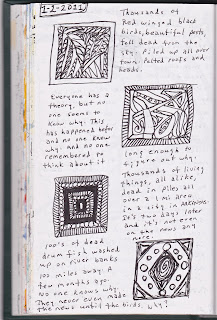 1-2-2011
Thousands of
Red winged black
birds, beautiful pests,
fell dead from the
sky. Piled up all over
town. Pelted roofs and
heads.
Everyone has a
theory, but no
one seems to
know why. This
has happened before
and no one knew
why. And no one
remembered to
think about it
long enough to
figure out why.
Thousands of living
things, all alike,
dead in piles all
over a 1 mi area
in a city in Arkansas.
It's two days later
and it's not even
on the news any
more.
100's of dead
drum fish washed
up on river banks
100 miles away a
few months ago.
No one knows why.
They never even made
the news until the birds. Why?